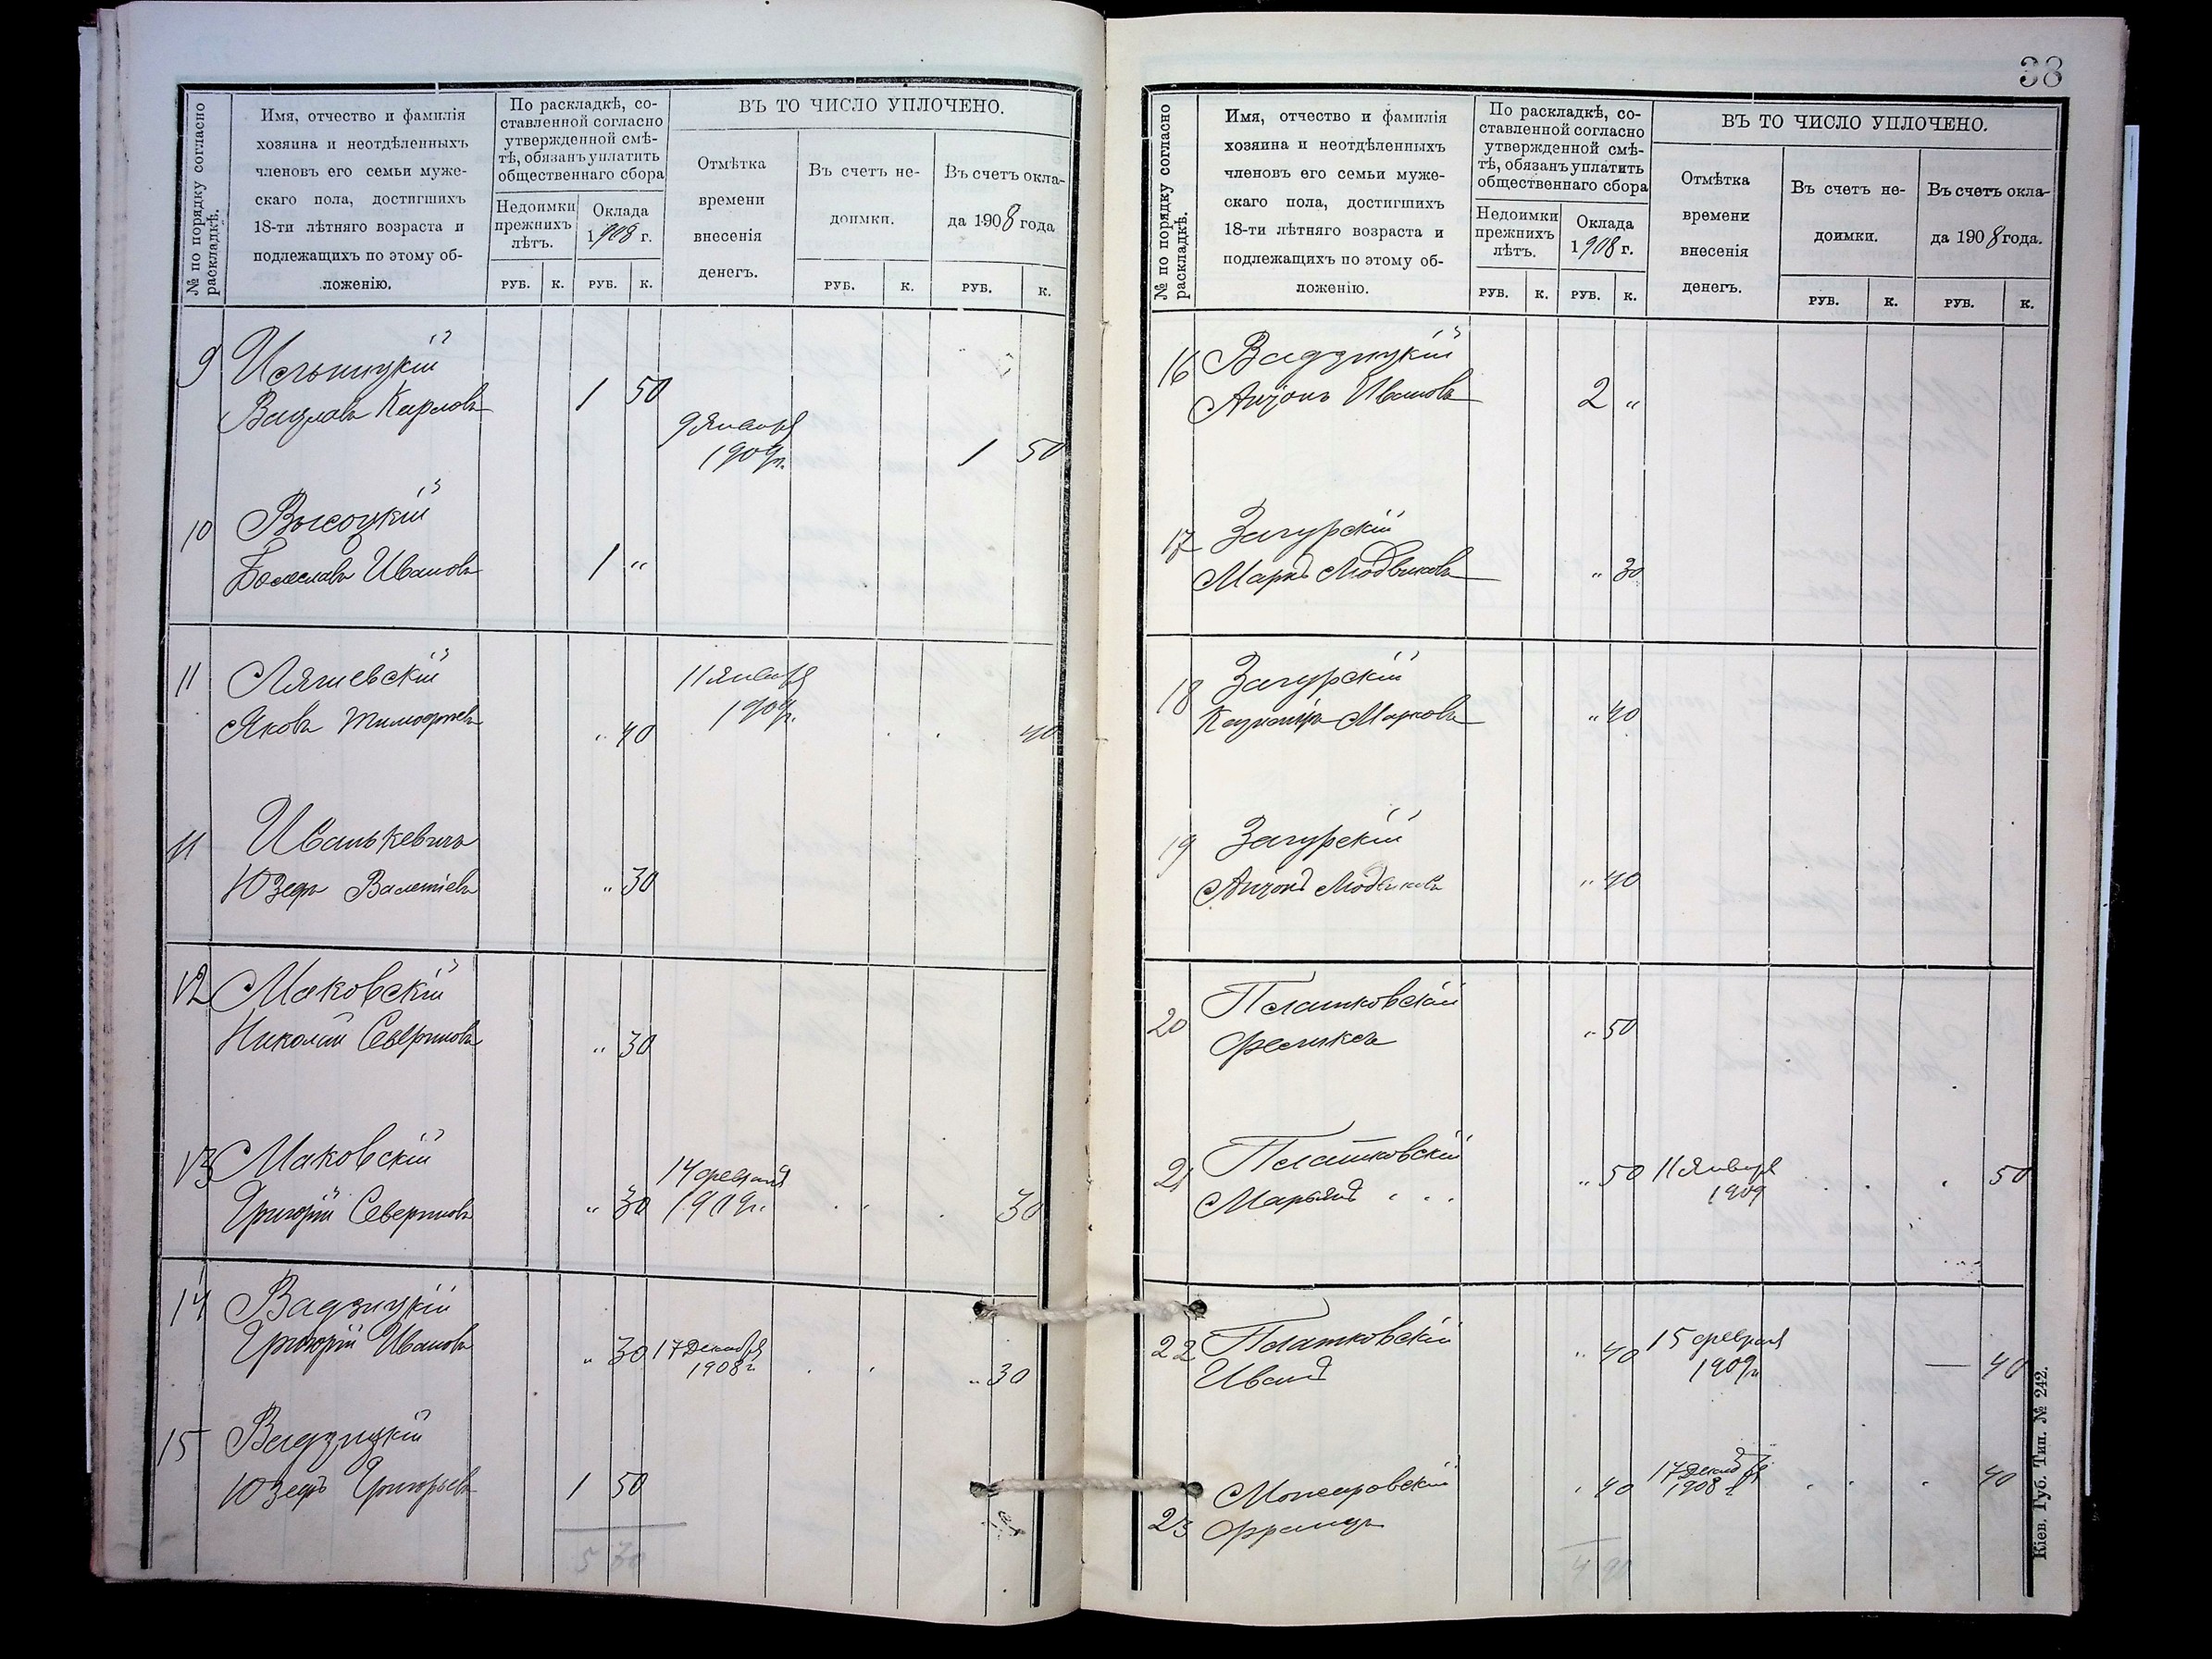 38
№ по порядку согласно раскладкѣ.
Имя, отчество и фамилія
хозяина и неотдѣленныхъ
членовъ его семьи муже-
скаго пола, достигшихъ
18-ти лѣтняго возраста и
подлежащихъ по этому об-
ложенію.
По раскладкѣ, со-
ставленной согласно
утвержденной смѣ-
тѣ, обязанъ уплатить
общественнаго сбора
Недоимки
прежнихъ
лѣтъ.
Оклада
1908 г.
ВЪ ТО ЧИСЛО УПЛОЧЕНО.
Отмѣтка
времени
внесенія
денегъ.
Въ счетъ не-
доимки.
Въ счетъ окла-
да 1908 года
РУБ. К. РУБ. К. РУБ. К. РУБ. К.
9 Ильницкій
Вацлавъ Карловъ 1 50
9 Января
1909г. 1 50
10 Высоцкій
Болеславъ Ивановъ 1 "
11 Лячевскій 11 Января
Яковъ Тимофѣевъ " 40 1909г. 40
11 Иванькевичъ
Юзефъ " 30
12 Маковскій
Николай Севериновъ " 30
13 Маковскій 14 февраля
Григорій Севериновъ " 30 1909г. 30
14 Вадзицкій
Григорій Ивановъ " 30 17 Декабря
1908г " 30
15 Вадзицкій
Юзефъ Григорьевъ 1 50
5 30
№ по порядку согласно раскладкѣ.
Имя, отчество и фамилія
хозяина и неотдѣленныхъ
членовъ его семьи муже-
скаго пола, достигшихъ
18-ти лѣтняго возраста и
подлежащихъ по этому об-
ложенію.
По раскладкѣ, со-
ставленной согласно
утвержденной смѣ-
тѣ, обязанъ уплатить
общественнаго сбора
Недоимки
прежнихъ
лѣтъ.
Оклада
1908 г.
ВЪ ТО ЧИСЛО УПЛОЧЕНО.
Отмѣтка
времени
внесенія
денегъ.
Въ счетъ не-
доимки.
Въ счетъ окла-
да 1908 года.
РУБ. К. РУБ. К. РУБ. К. РУБ. К.
16 Вадзицкій
Антонъ Ивановъ 2 "
17 Загурскій
Маркъ Людвиковъ " 30
18 Загурскій
Казимиръ Марковъ " 40
19 Загурскій
Антонъ Людвиковъ " 40
20 Платковскій
Феликсъ " 50
21 Платковскій
Марьянъ " 50 11 Января
1909 50
22 Платковскій
Иванъ " 40 15 февраля
1909г — 40
23 Можаровскій
Францъ " 40 17 Декабря
1908 г 40
4 90
Кіев. Губ. Тип. № 242.